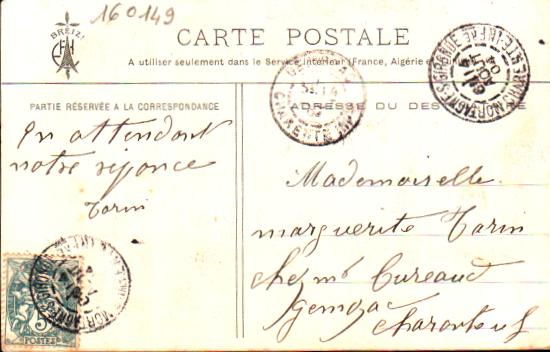 160149
BREIZ
CARTE POSTALE
A utiliser seulement dans le Service intérieur (France, Algérie
PARTIE RÉSERVÉE A LA CORRESPONDANCE
ADRESSE DU DES
En attendant
notre réponce
Tarin
Mademoiselle
marguerite Tarin
chez Mr Bureaud
Gemozac
Charente Inf
MORTAGNE-S-GIRONDE
CHARENTE INF
POSTES